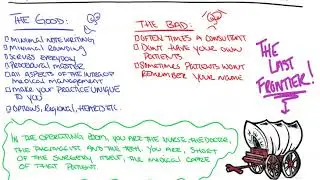 The Good:
Minimal note writing
Minimal rounding
Scrubs everyday
Procedural mastery
All aspects of the intraop
medical management
Make your practice unique
to you
Options, Regional, Hearts, etc.
The Bad:
Often times a consultant
Don't have your own
patients
Sometimes patients won't
remember your name
The
Last
Frontier!
In the operating room, you are the nurse, the doctor,
the pharmacist and the tech. You are, short
of the surgery itself, the medical care
of that patient.